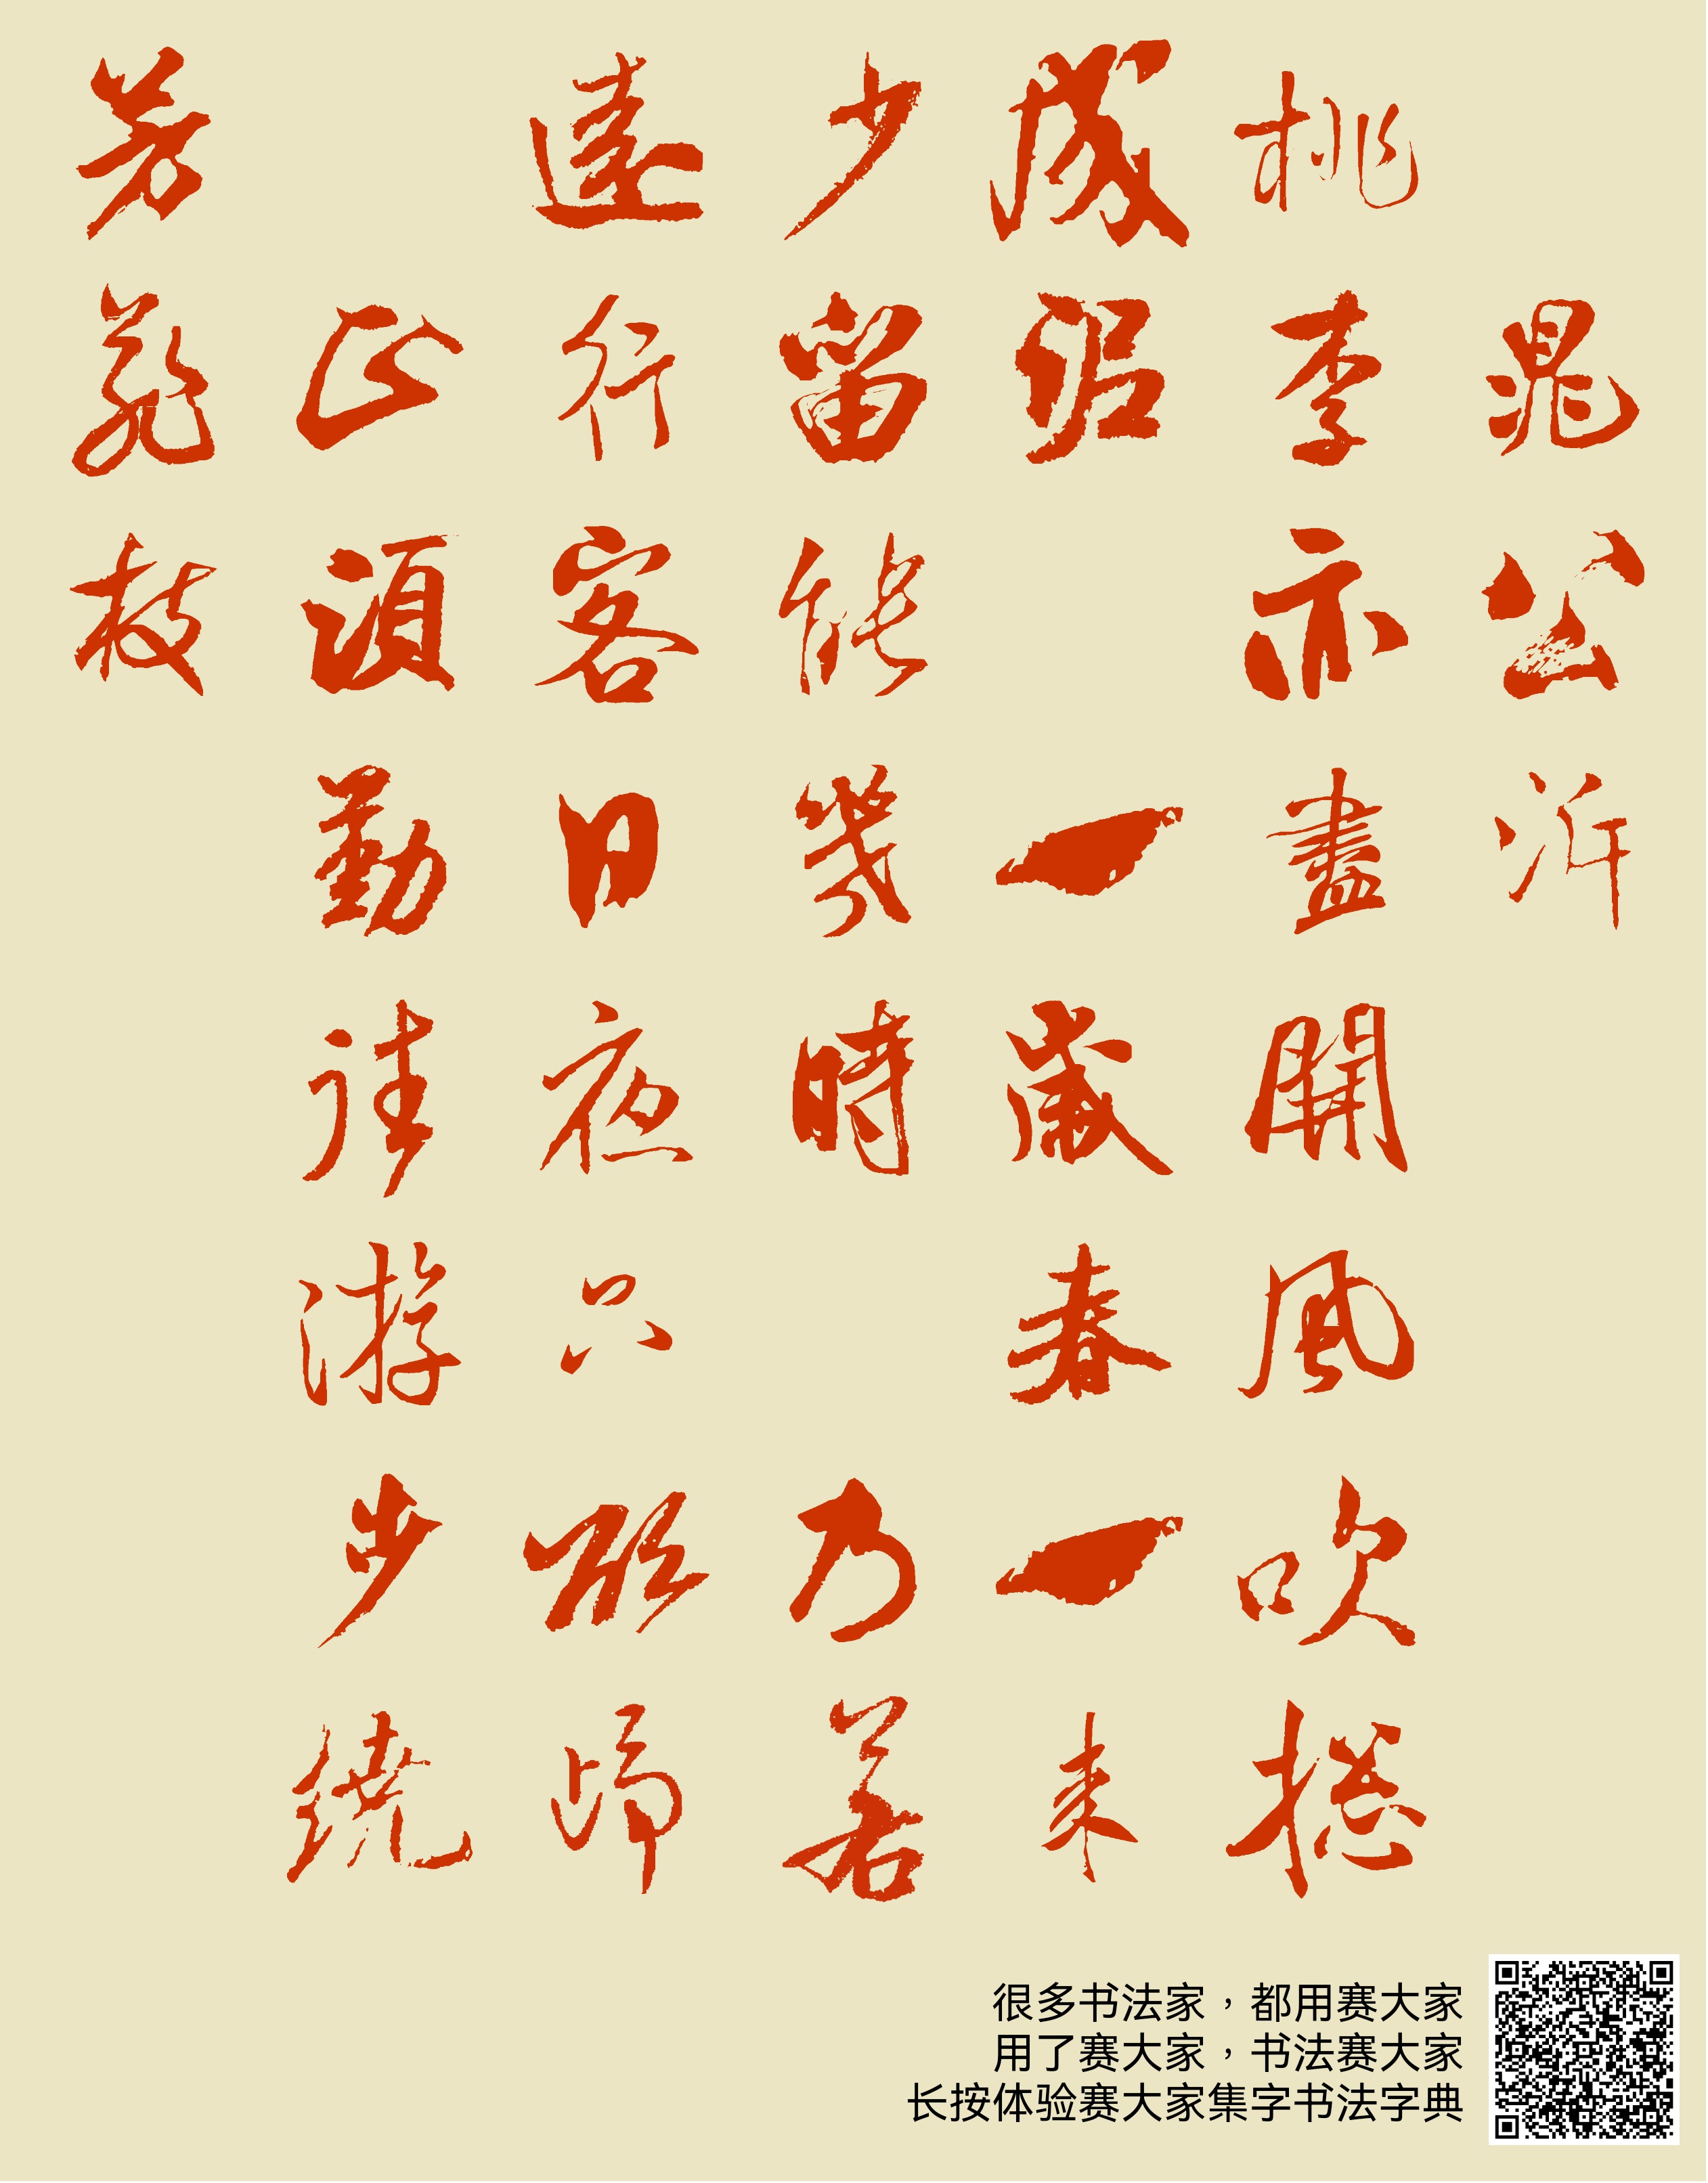 晁公泝
桃李亦盡開 風吹捴
成泥 一歲春一来
少留能幾時 乃若
遠行客日夜只欲歸
正須勤往游步繞
芳菲枝
很多书法家，都用赛大家
用了赛大家，书法赛大家
长按体验赛大家集字书法字典